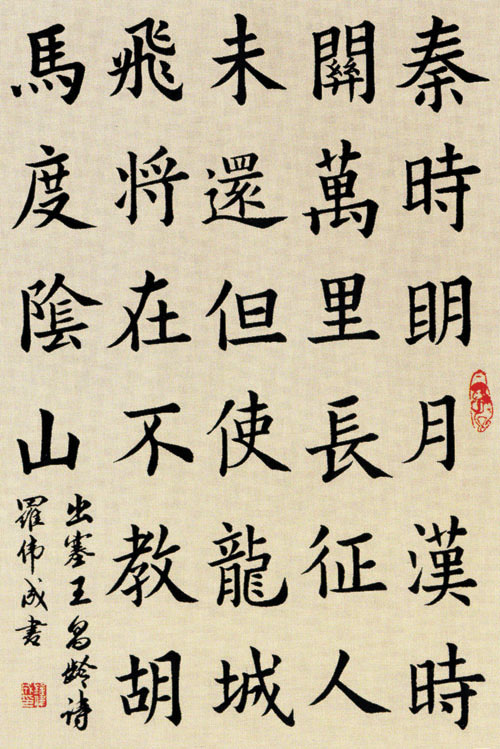 秦時明月漢時
關萬里長征人
未還但使龍城
飛将在不教胡
馬度陰山
出塞王昌龄诗
羅伟成書